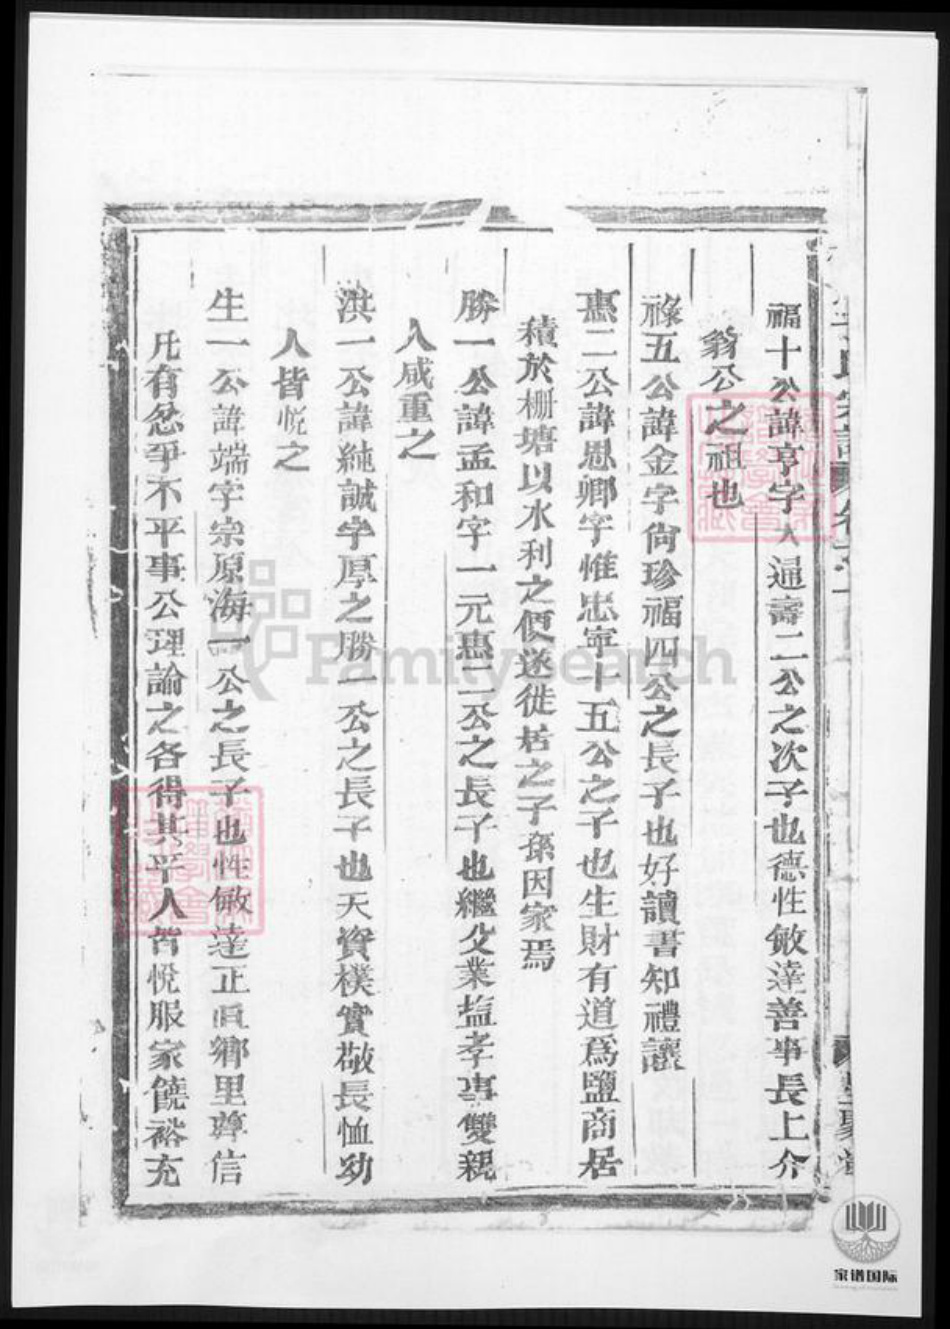 福十公諱亨字人通壽二公之次子也德性敏達善事長上介
翁公之祖也
祿五公諱金字尙珍福四公之長子也好讀書知禮讓
惠二公諱恩卿字惟忠寧十五公之子也生財有道爲鹽商居
積於柵塘以水利之便遂徙居之子孫因家焉
勝一公諱孟和字一元惠二公之長子也繼父業塩孝事雙親
人咸重之
洪一公諱純誠字厚之勝一公之長子也天資樸實敬長恤幼
人皆悅之
生一公諱端字宗原海一公之長子也性敏達正直鄉里尊信
凡有忿爭不平事公理論之各得其平人皆悅服家饒裕充
FamilySearch
家谱国际